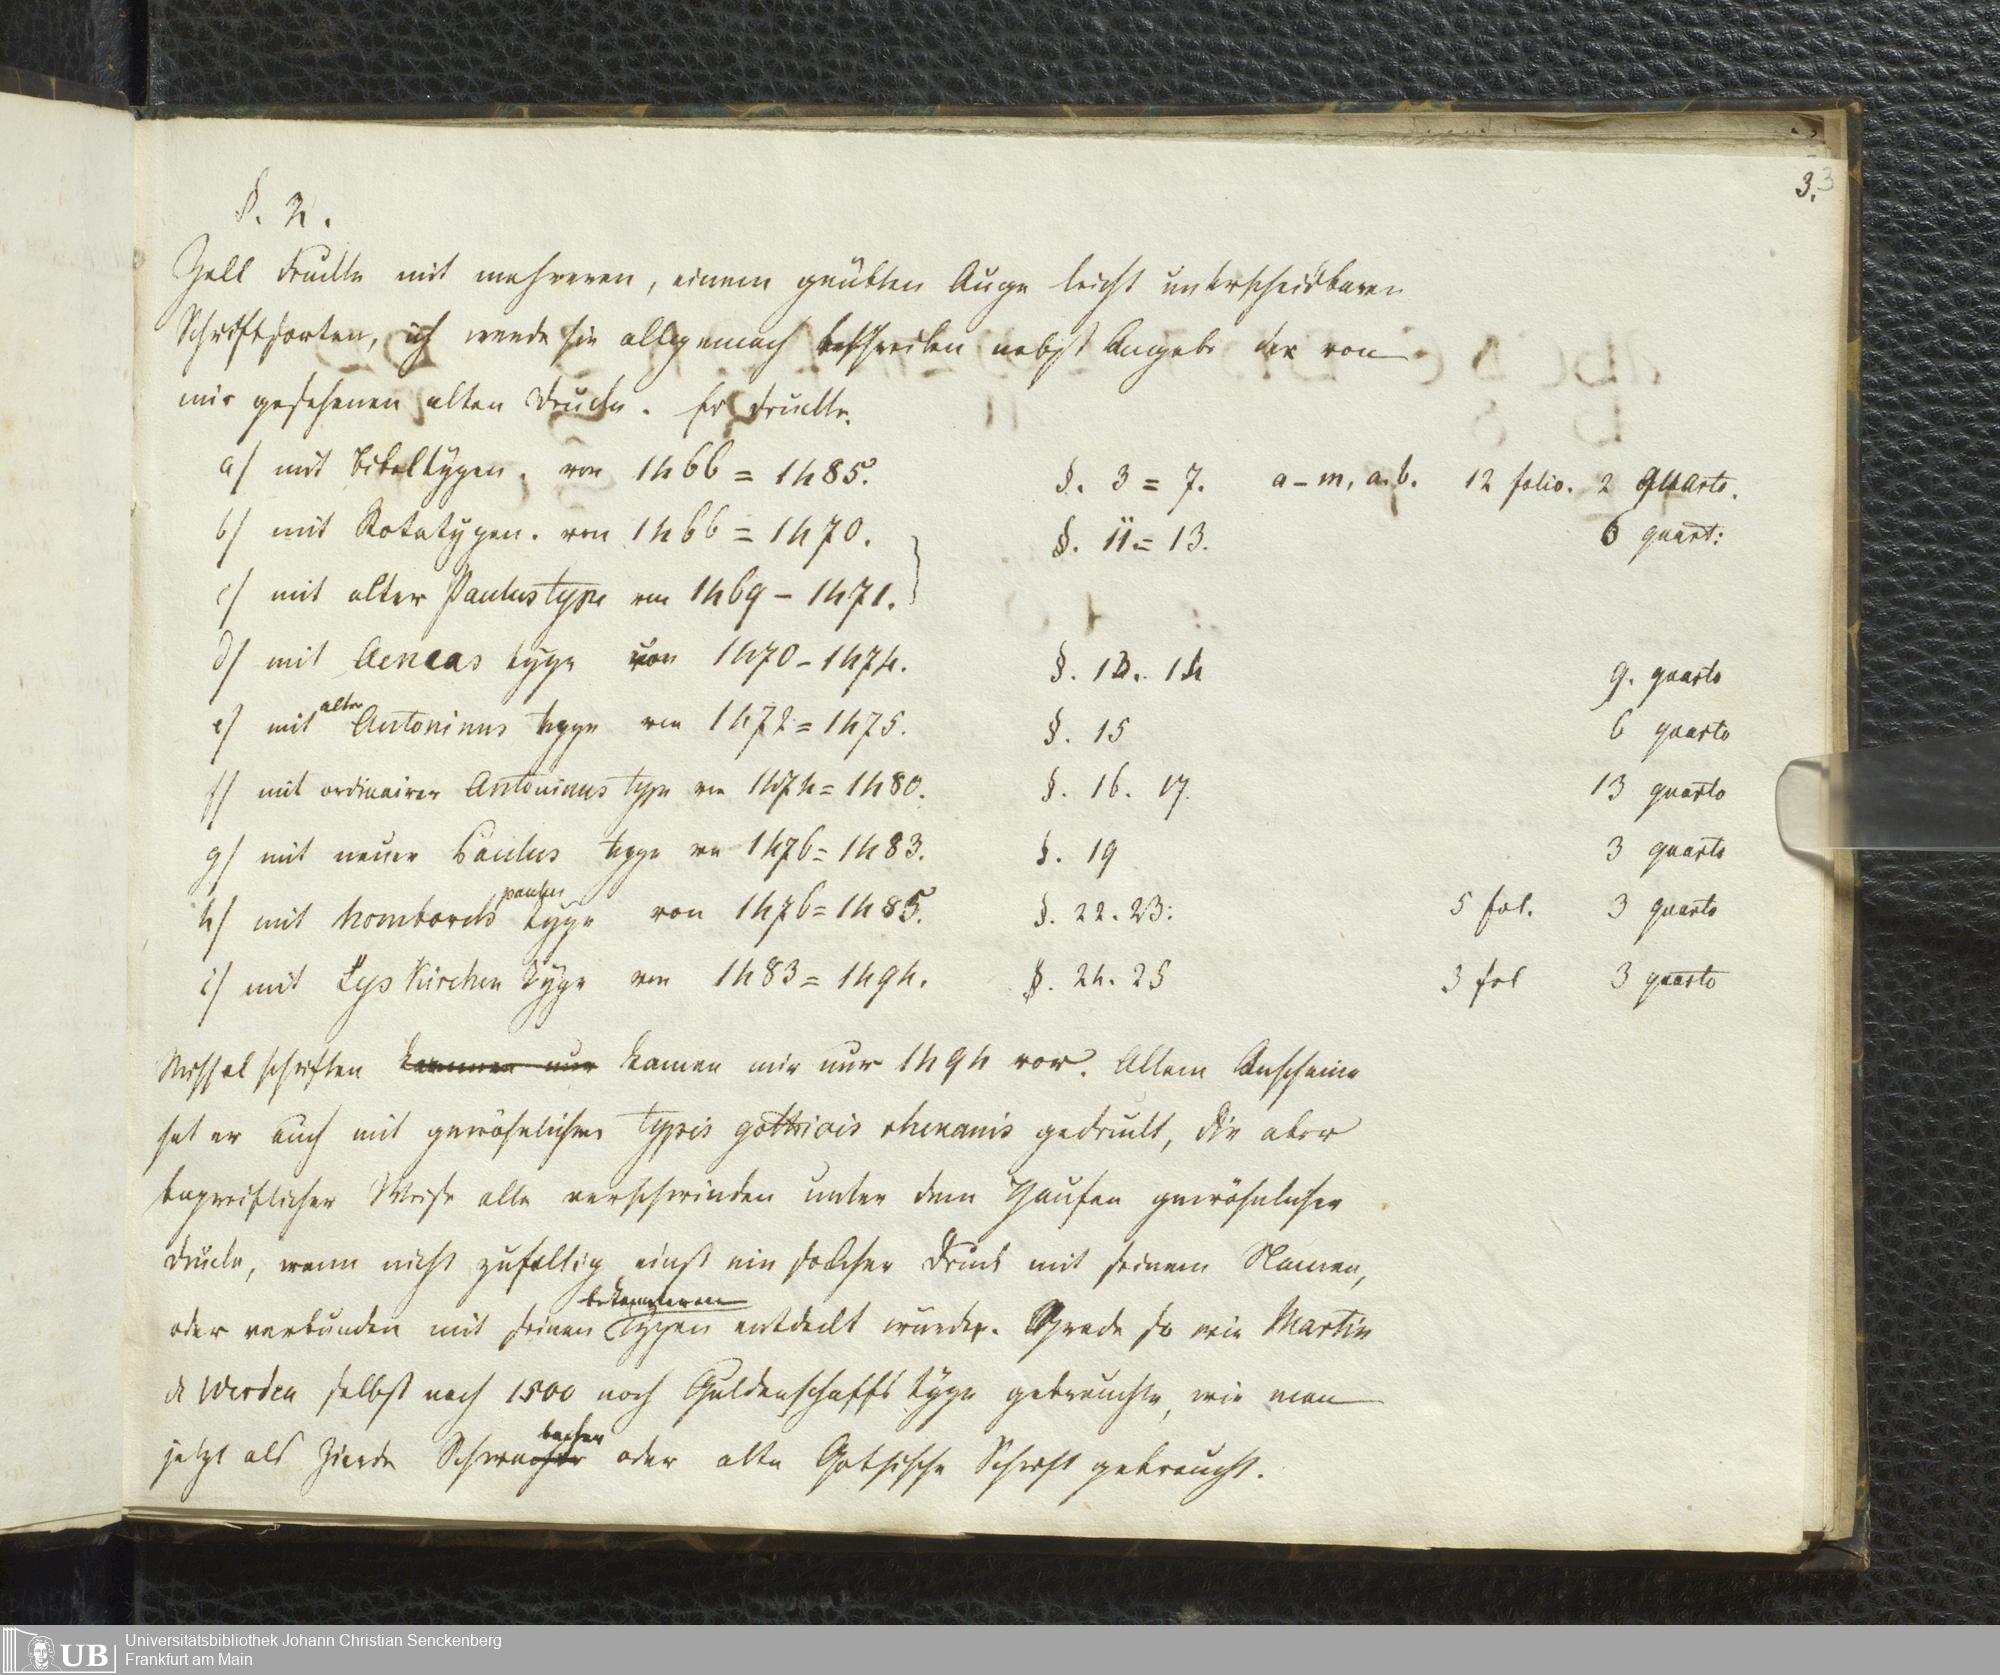 3. 3
§. 2.
Zell druckte mit mehreren, einem geübten Auge leicht unterscheidbaren
Schriftsorten, ich werde sie allgemach beschreiben nebst Angabe der von
mir gesehenen alten Drucke. Er druckte.
a) mit Bibeltypen. von 1466 = 1485. §. 3 = 7. a–m, a.b. 12 folio. 2 quarto.
b) mit Rotatypen. von 1466 = 1470. §. 11 = 13. 6 quart:
c) mit alter Paulus type von 1469 – 1471.
d) mit Aeneas type von 1470 – 1474. §. 13. 14 9. quarto
e) mit alter Antoninus type von 1472 = 1475. §. 15 6 quarto
f) mit ordinairer Antoninus type von 1474 = 1480. §. 16. 17. 13 quarto
g) mit neuer Paulus type von 1476 = 1483. §. 19 3 quarto
h) mit homborchs paulus type von 1476 = 1485. §. 22. 23: 5 fol. 3 quarto
i) mit Lyskirchen type von 1483 = 1494. §. 24. 25 3 fol 3 quarto
Missalschriften kommen nur kamen mir nur 1494 vor. Allem Anscheine
hat er auch mit gewöhnlichen typis gothicis rhenanis gedruckt, die aber
begreiflicher Weise alle verschwinden unter dem Haufen gewöhnlicher
Drucke, wenn nicht zufällig einst ein solcher Druck mit seinem Namen,
oder verbunden mit seinen bekannteren Typen entdeckt würde. Grade so wie Martin
de Werden selbst nach 1500 noch Guldenschaffs type gebrauchte, wie man
jetzt als Zierde Schwabacher oder alte Gothische Schrift gebraucht.
UB
Universitätsbibliothek Johann Christian Senckenberg
Frankfurt am Main